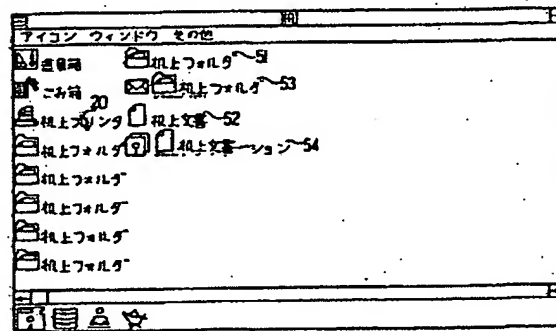 アイコン ウィンドウ その他
道具箱 机上フォルダ 51
ごみ箱 机上フォルダ 53
20
机上プリンタ 机上文書 52
机上フォルダ 机上文書ーション 54
机上フォルダ
机上フォルダ
机上フォルダ
机上フォルダ